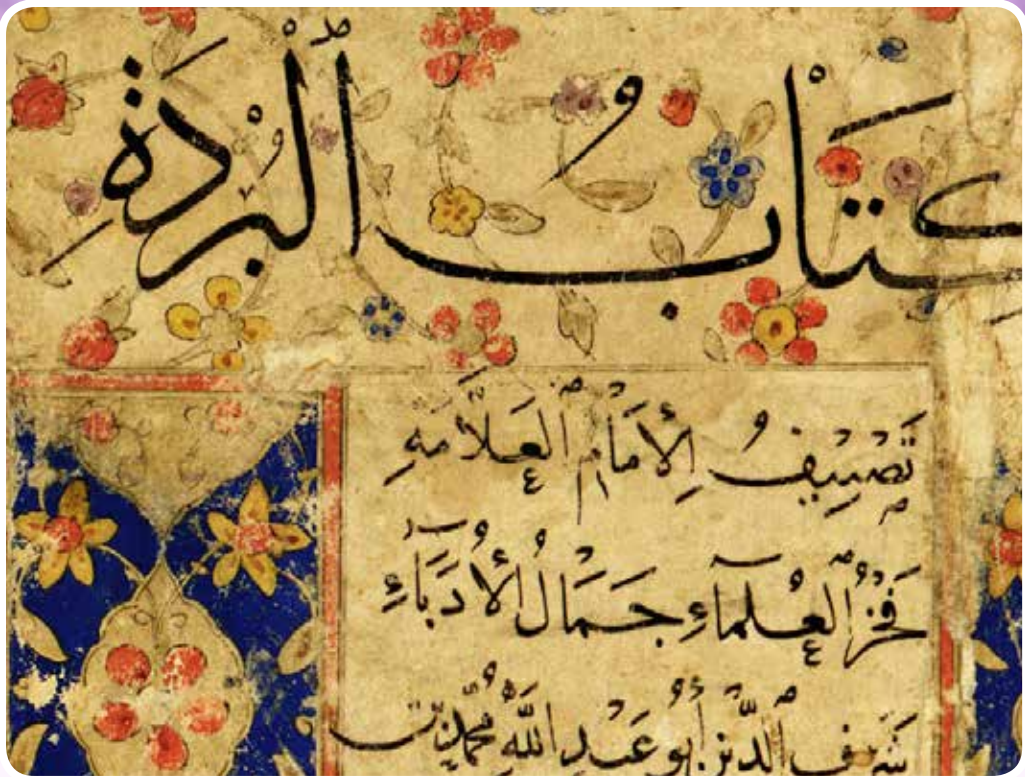 كِتَابُ ٱلْبُرْدَة
تَصْنِيفُ ٱلْإِمَامِ ٱلْعَلَّامَةِ
فَخْرُ ٱلْعُلَمَاءِ جَمَالُ ٱلْأُدَبَاءِ
شَرَف ٱلدِّين أَبُو عَبْدِ اللَّهِ مُحَمَّد بْن